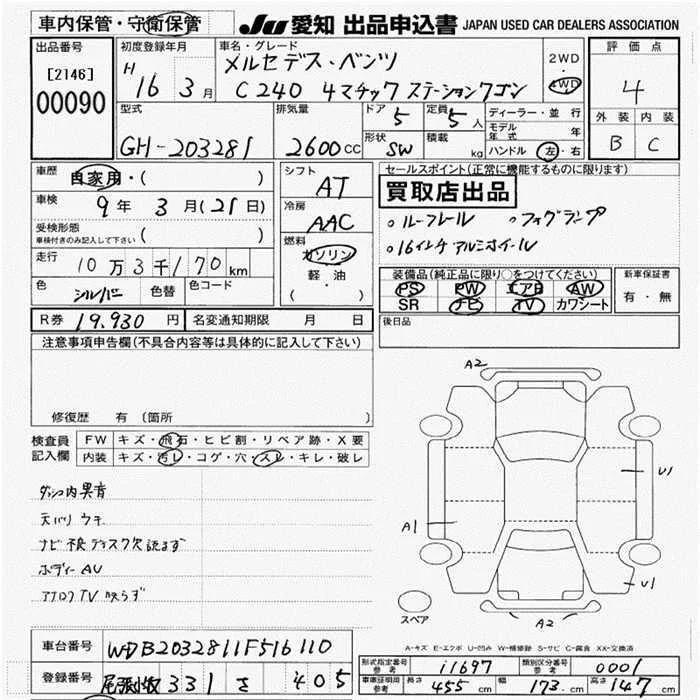 車内保管・守衛保管
JU 愛知 出品申込書 JAPAN USED CAR DEALERS ASSOCIATION
出品番号
[2146]
00090
初度登録年月
H 16 3 月
車名・グレード
メルセデス・ベンツ
C240 4マチック ステーションワゴン
2WD
・
4WD
評価点
4
外装 内装
B C
型式
GH-203281
排気量
2600 CC
ドア 5
定員 5 人
形状 SW
積載 kg
ディーラー・並行
モデル年式 年
ハンドル 左・右
車歴 自家用・( )
車検 9 年 3 月(21日)
受検形態
車検付きのみ記入して下さい ( )
走行 10 万 3 千 170 km
色 シルバー 色替 色コード
シフト
AT
冷房
AAC
燃料
ガソリン
軽・油
( )
セールスポイント(正常に機能するものに限ります)
買取店出品
○ルーフレール ○フォグランプ
○16インチアルミホイール
装備品(純正品に限り○をつけてください)
PS PW エアB AW
SR ナビ TV カワシート
新車保証書
有・無
R券 19,930 円 名変通知期限 月 日
後日品
注意事項申告欄(不具合内容等は具体的に記入して下さい)
修復歴 有 (箇所 )
検査員記入欄
FW キズ・飛石・ヒビ割・リペア跡・X要
内装 キズ・汚レ・コゲ・穴・スレ・キレ・破レ
ダッシュ内異音
天バリ ウキ
ナビ不良 ディスク欠 読まず
ボディー AU
アナログTV映らず
A2
U1
A1
U1
A2
スペア
A-キズ E-エクボ U-凹み W-補修跡 S-サビ C-腐食 XX-交換済
車台番号 WDB2032811F516110
登録番号 尾張小牧 331 さ 405
形式指定番号 参考 11697 類別区分番号 参考 0001
車庫証明用 参考 長さ 455 cm 幅 173 cm 高さ 147 cm